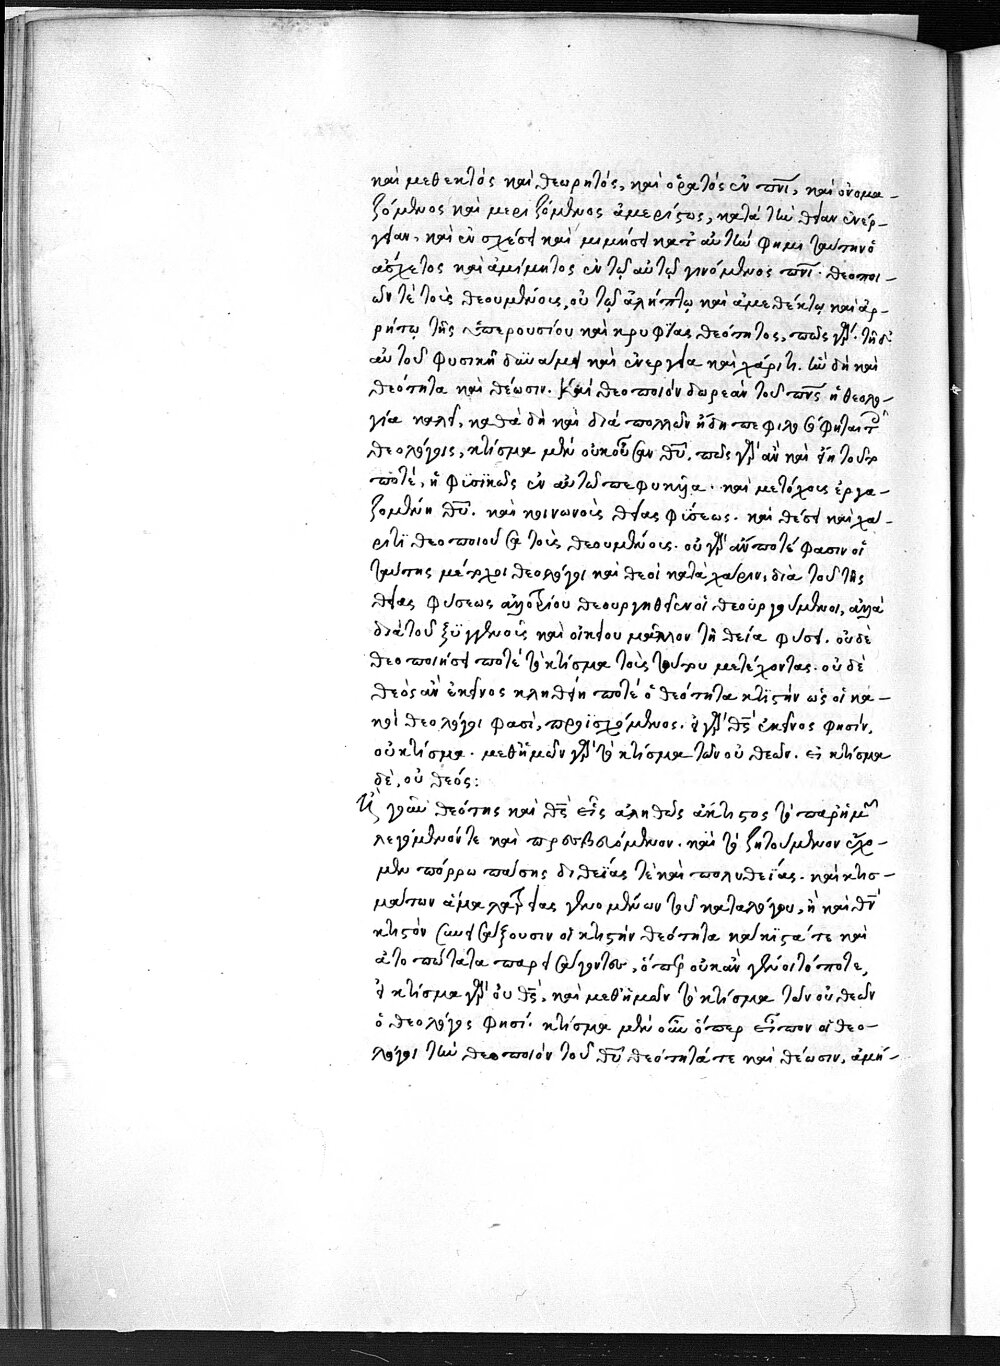 καὶ μεθεκτός καὶ θεωρητός, καὶ ὁρατός ἐν πν̅ι, καὶ ὀνομα-
ζόμενος καὶ μεριζόμενος ἀμερίστως, κατὰ τὴν θείαν ἐνέρ-
γειαν, καὶ ἐν σχέσει καὶ μιμήσει κατ' αὐτὴν φημι ταύτην ὁ
ἀσχετος καὶ ἀμίμητος ἐν τῷ αὐτῷ γινόμενος πν̅ι. θεοποι-
ῶν τὲ τοὺς θεουμένους, οὐ τῷ ἀλήπτῳ καὶ ἀμεθέκτῳ καὶ ἀρ-
ρήτῳ τῆς ὑπερουσίου καὶ κρυφίας θεότητος, πῶς γάρ. τῇ δ'
αὐτοῦ φυσικῇ δυνάμει καὶ ἐνεργεία καὶ χάριτι. ἣν δὴ καὶ
θεότητα καὶ θέωσιν. καὶ θεοποιόν δωρεὰν τοῦ πν̅ς ἡ θεολο-
γία καλεῖ, καθὰ δὴ καὶ διὰ πολλῶν ἤδη πεφιλοσόφηται τοῖς
θεολόγοις, κτίσμα μὲν οὐκ οὖσαν θυ̅. πῶς γὰρ ἂν καὶ εἴη τοῦτο
ποτέ, ἡ φυσικῶς ἐν αὐτῷ πεφυκυῖα. καὶ μετόχους ἐργα-
ζομένη θυ̅. καὶ κοινωνοὺς θείας φύσεως. καὶ θέσει καὶ χά-
ριτι θεοποιοῦσα τοὺς θεουμένους. οὐ γὰρ ἄν ποτέ φασιν οἱ
ταύτης μέτοχοι θεολόγοι καὶ θεοὶ κατὰ χάριν, διὰ τοῦ τῆς
θείας φύσεως ἀλλοτρίου θεουργηθεῖεν οἱ θεουργούμενοι, ἀλλὰ
διὰ τοῦ ξυγγενοῦς καὶ οἰκείου μᾶλλον τῇ θεία φύσει. οὐδὲ
θεοποιήσει ποτὲ τὸ κτίσμα τοὺς τούτου μετέχοντας. οὐδὲ
θεὸς ἂν ἐκεῖνος κληθείη ποτέ ὁ θεότητα κτιστὴν ὡς οἱ κα-
κοὶ θεολόγοι φασὶ, προϊσχόμενος. εἰ γὰρ θς̅ ἐκεῖνος φησίν,
οὐ κτίσμα. μεθ' ἡμῶν γὰρ τὸ κτίσμα τῶν οὐ θεῶν. εἰ κτίσμα
δὲ, οὐ θεός:
Ἡ γοῦν θεότης καὶ θς̅ εἷς ἀληθῶς ἄκτιστος τὸ παρ' ἡμῶν
λεγόμενόν τε καὶ πρεσβευόμενον. καὶ τὸ ζητούμενον ἔχο-
μεν πόρρω πάσης διθεΐας τὲ καὶ πολυθεΐας. καὶ κτισ-
μάτων ἅμα λατρείας γενομένων τοῦ καταλόγου, ἢ καὶ θν̅
κτιστόν συνεισάξουσιν οἱ κτιστὴν θεότητα καινίσαντες καὶ
ἀτοπώτατα παρεισάγοντες, ὅπερ οὐκ ἂν γένοιτό ποτε,
εἰ κτίσμα γὰρ οὐ θς̅, καὶ μεθ' ἡμῶν τὸ κτίσμα τῶν οὐ θεῶν
ὁ θεολόγος φησί. κτίσμα μὲν οὖν ὅπερ εἶπον οἱ θεο-
λόγοι τὴν θεοποιὸν τοῦ θυ̅ θεότητά τε καὶ θέωσιν, ἀμή-